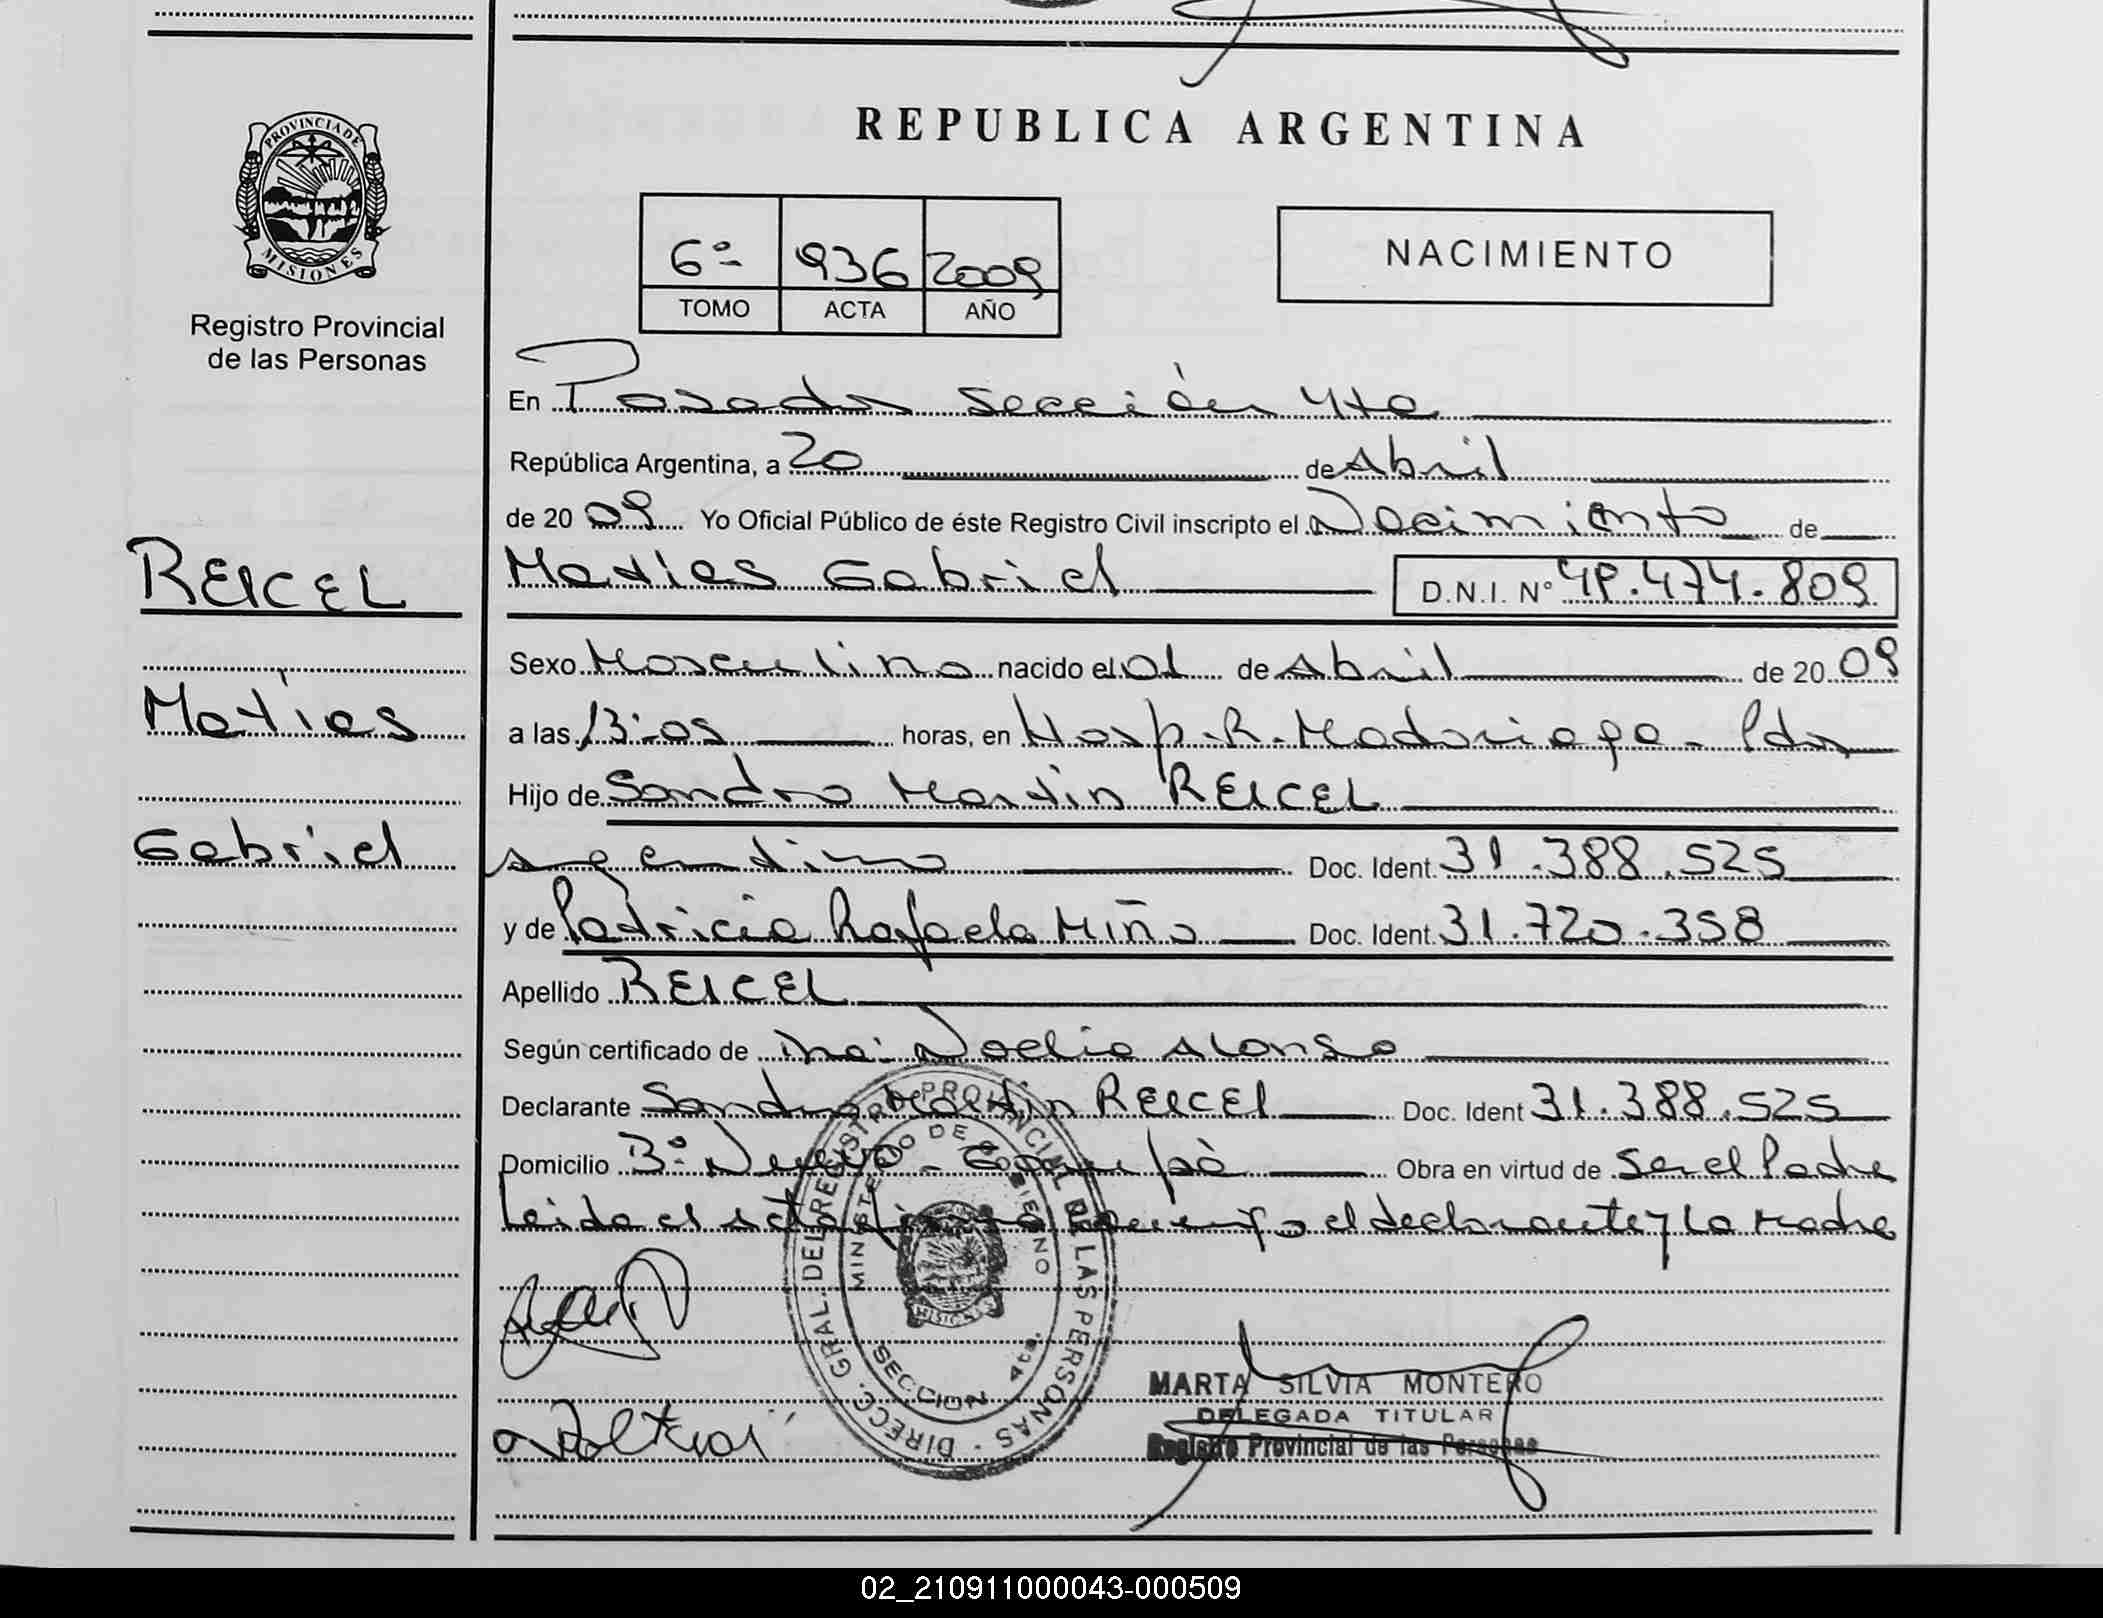 REPUBLICA ARGENTINA
PROVINCIA DE
MISIONES
Registro Provincial
de las Personas
6º 936 2009
TOMO ACTA AÑO
NACIMIENTO
En Posadas Sección 4ta
República Argentina, a 20 de Abril
de 2009 Yo Oficial Público de éste Registro Civil inscripto el Nacimiento de
Matias Gabriel D.N.I. Nº 49.474.809
REICEL
Matias
Gabriel
Sexo Masculino nacido el 01 de Abril de 2009
a las 13:05 horas, en Hosp. R. Madariaga - Pdas
Hijo de Sandro Martin REICEL
argentino Doc. Ident. 31.388.525
y de Patricia Rafaela Miño Doc. Ident. 31.720.358
Apellido REICEL
Según certificado de Noelia Alonso
Declarante Sandro Martin REICEL Doc. Ident 31.388.525
Domicilio Bº Nuevo - Garupá Obra en virtud de ser el Padre
Leida el acta el declarante y la Madre
DIRECC. GRAL. DEL REGISTRO PROVINCIAL DE LAS PERSONAS
MINISTERIO DE GOBIERNO
MISIONES
SECCION 4ta.
MARTA SILVIA MONTERO
DELEGADA TITULAR
Registro Provincial de las Personas
02_210911000043-000509